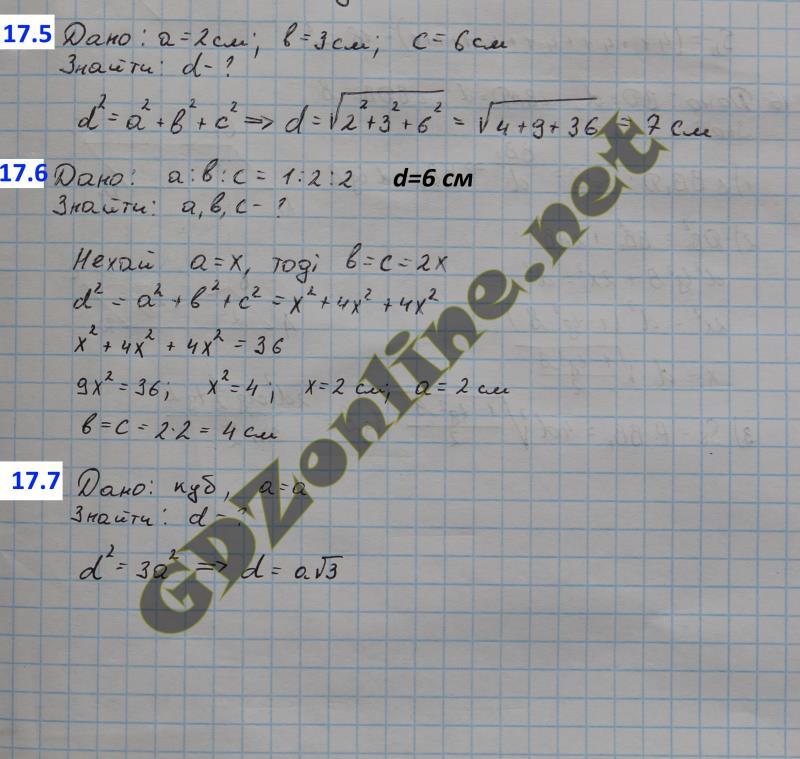 17.5 Дано: a=2см; в=3см; c=6см
Знайти: d-?
d²=a²+в²+c² => d=√2²+3²+6² = √4+9+36 = 7 см
17.6 Дано: a:в:c=1:2:2 d=6 см
Знайти: a,в,c-?
Нехай a=x, тоді в=c=2x
d²=a²+в²+c²=x²+4x²+4x²
x²+4x²+4x²=36
9x²=36; x²=4; x=2 см; a=2 см
в=c=2·2=4 см
17.7 Дано: куб, a=a
Знайти: d-?
d²=3a² => d=a√3
GDZonline.net